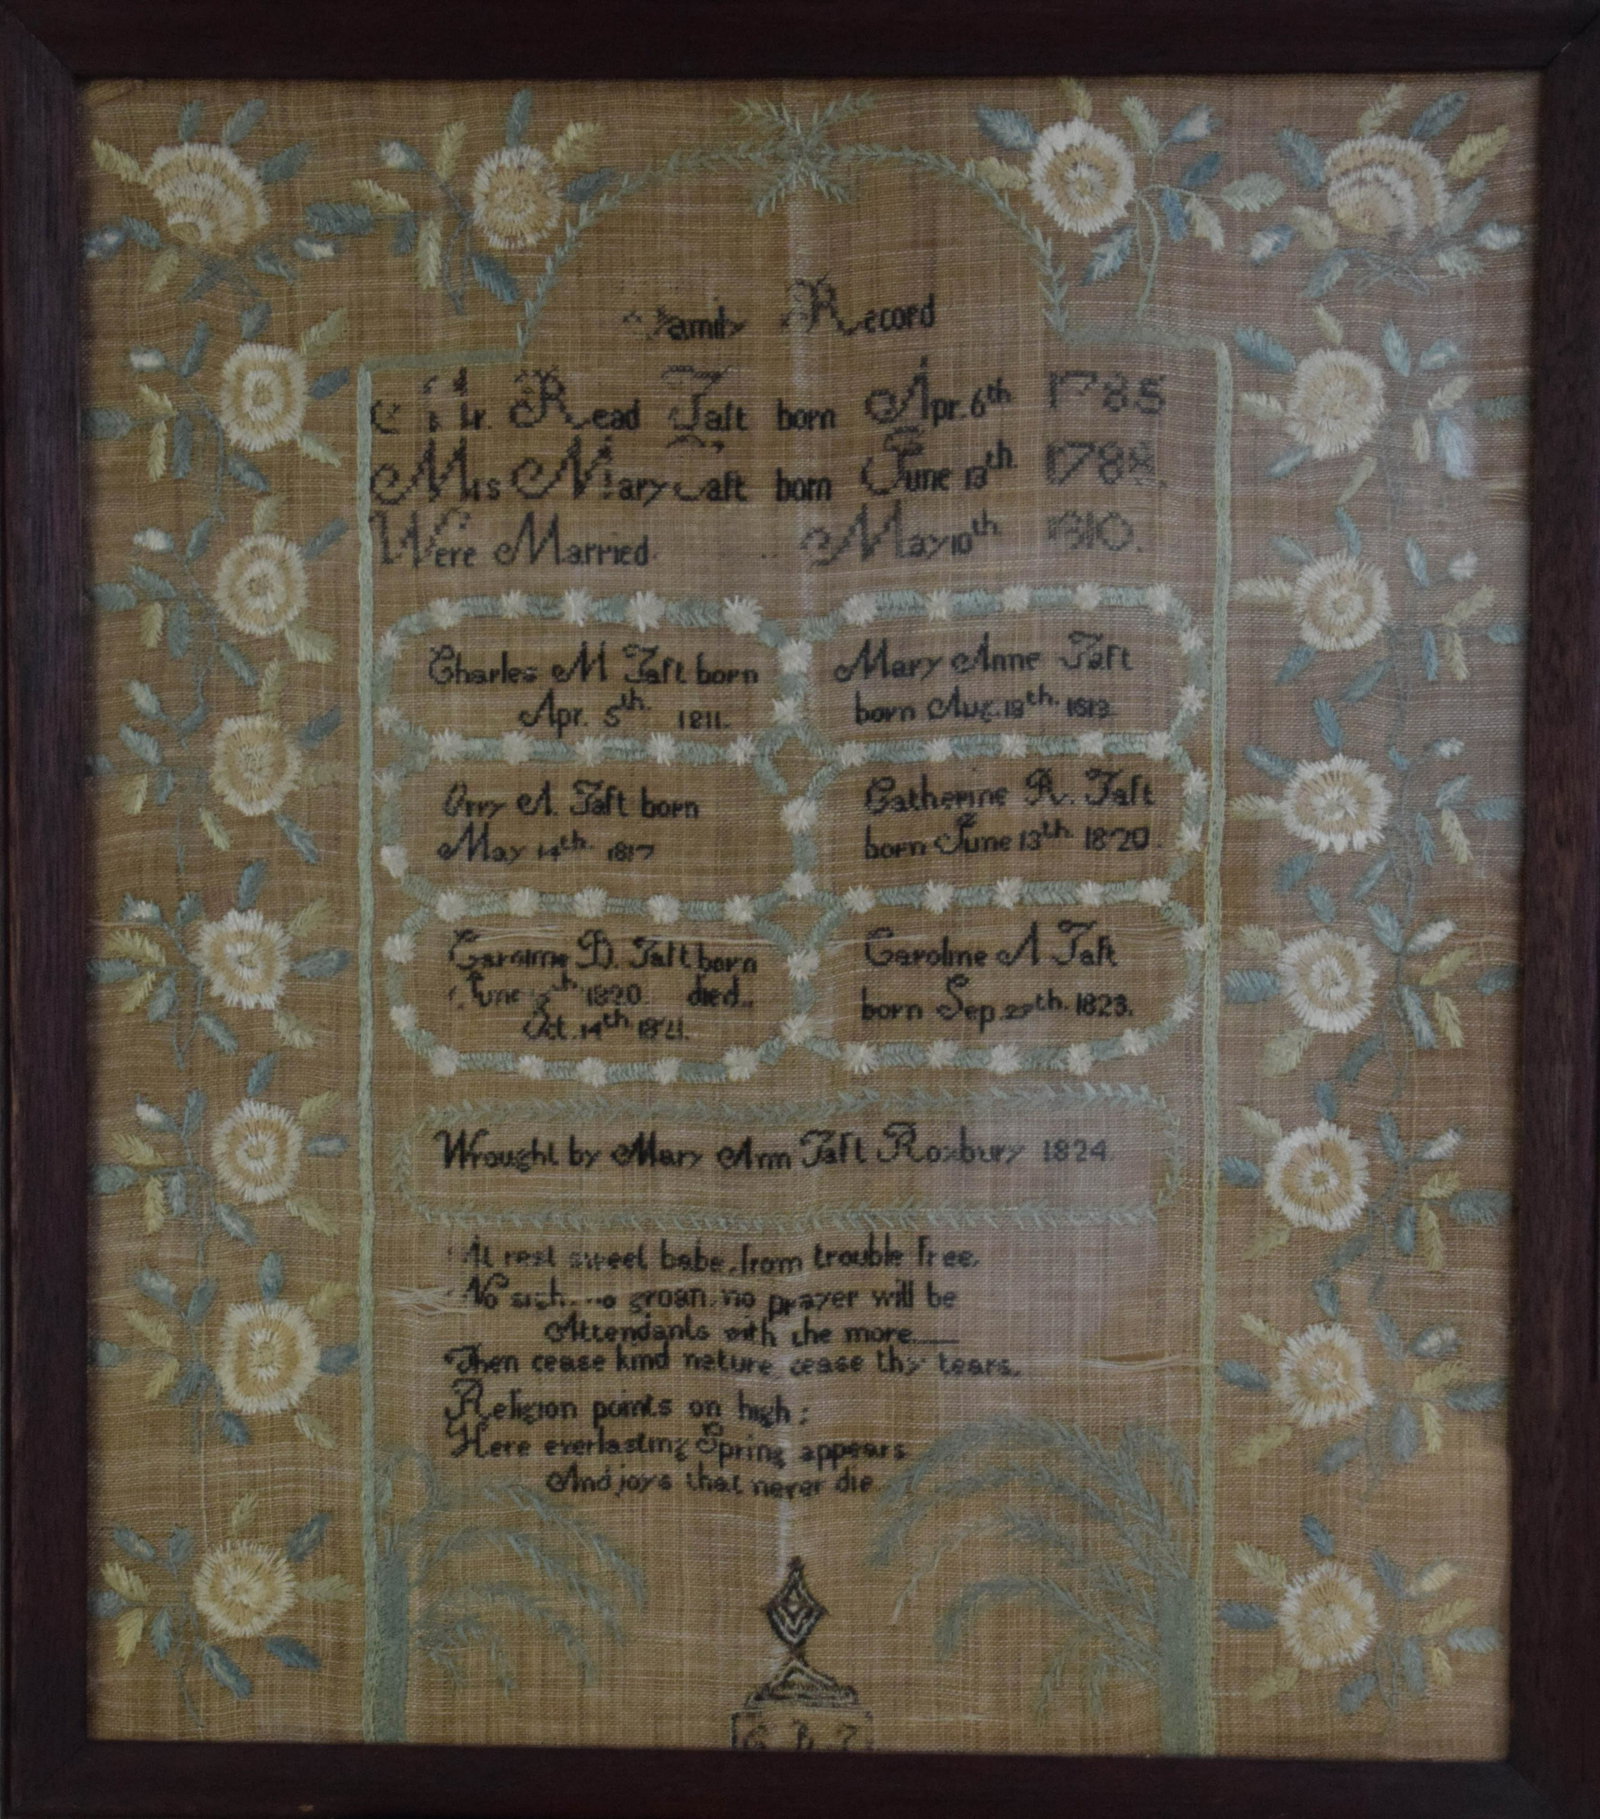 Family Record
Mr. Read Taft born Apr. 6th 1785
Mrs Mary Taft born June 13th 1788.
Were Married. May 10th 1810.
Charles M Taft born
Apr. 5th 1811.
Mary Anne Taft
born Aug. 18th. 1813.
Orry A. Taft born
May 14th 1817
Catherine R. Taft
born June 13th 1820.
Caroline D. Taft born
June 1820. died.
Oct. 14th 1821.
Caroline A Taft
born Sep. 27th. 1823.
Wrought by Mary Ann Taft Roxbury 1824.
At rest sweet babe, from trouble free.
No sigh, no groan, no prayer will be
Attendants with the more
Then cease kind nature cease thy tears.
Religion points on high;
Here everlasting Spring appears
And joys that never die.